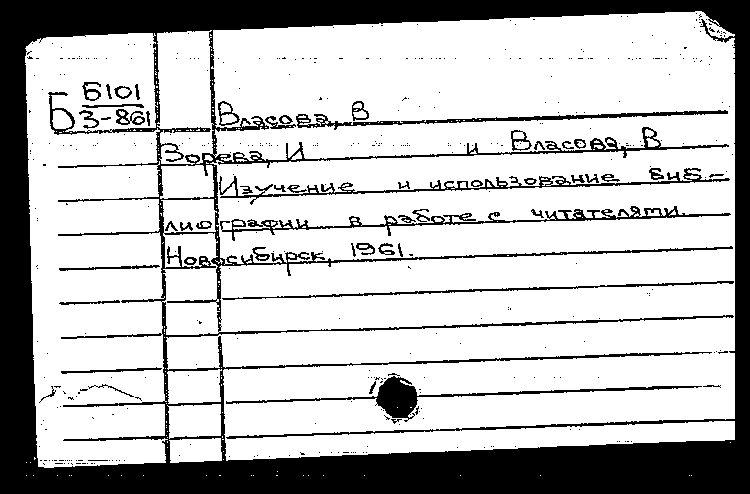 Б Б101
З-861
Власова, В
Зорева, И и Власова, В
Изучение и использование биб-
лиографии в работе с читателями.
Новосибирск, 1961.